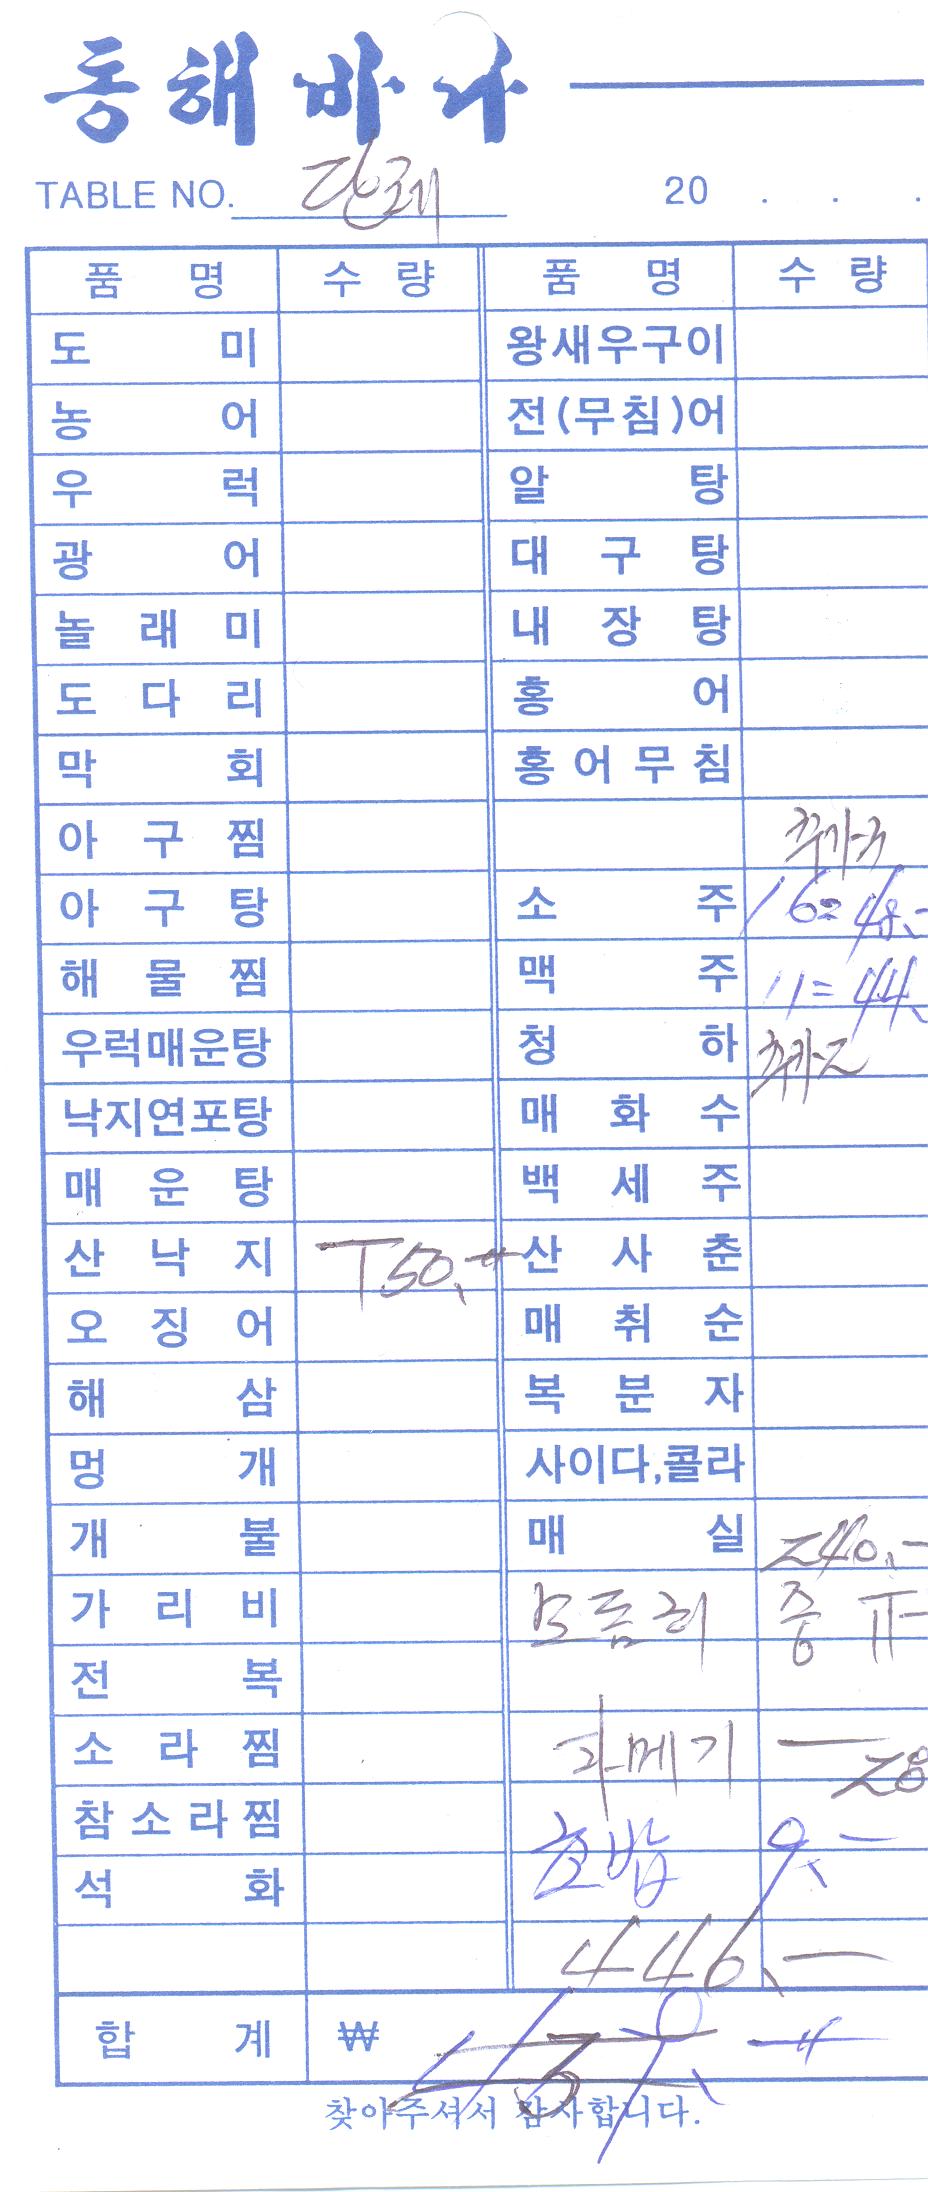 동해바다
TABLE NO. 단체 20 . . .
품 명 수 량 품 명 수 량
도 미 왕새우구이
농 어 전(무침)어
우 럭 알 탕
광 어 대 구 탕
놀 래 미 내 장 탕
도 다 리 홍 어
막 회 홍 어 무 침
아 구 찜
아 구 탕 소 주 16=48.-
해 물 찜 맥 주 11=44.
우럭매운탕 청 하
낙지연포탕 매 화 수
매 운 탕 백 세 주
산 낙 지 T50.- 산 사 춘
오 징 어 매 취 순
해 삼 복 분 자
멍 개 사이다,콜라
개 불 매 실 240.-
가 리 비 모듬회 중
전 복
소 라 찜 과메기 -
참 소 라 찜 초밥 9.-
석 화
446.-
합 계 ₩
찾아주셔서 감사합니다.